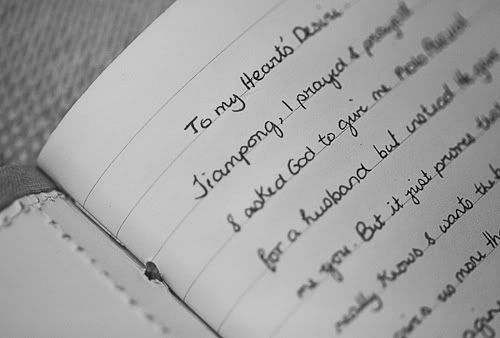 To my Heart's Desire
Jiampong, I prayed & prayed
I asked God to give me
for a husband but instead He gave
me you. But it just proves that
really knows & wants that
us more tha